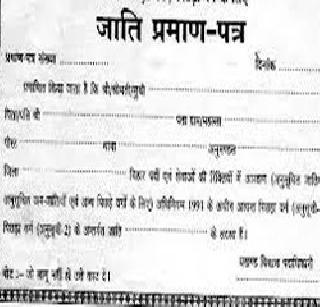 जाति प्रमाण-पत्र
प्रमाण-पत्र संख्या ........................ दिनांक ....................
प्रमाणित किया जाता है कि श्री/श्रीमती/सुश्री ........................
पिता/पति श्री ........................ पता ग्राम/मोहल्ला ........................
पोस्ट ............ थाना ............ अनुमण्डल ............
जिला ........................ बिहार पदों एवं सेवाओं की रिक्तियों में आरक्षण (अनुसूचित जाति
अनुसूचित जन-जातियों एवं अन्य पिछड़े वर्गों के लिए) अधिनियम 1991 के अधीन अत्यन्त पिछड़ा वर्ग (अनुसूची-
पिछड़ा वर्ग (अनुसूची-2) के अन्तर्गत जाति ........................ के सदस्य हैं।
प्रखण्ड विकास पदाधिकारी
नोट :- जो लागू नहीं हो उसे काट दें।